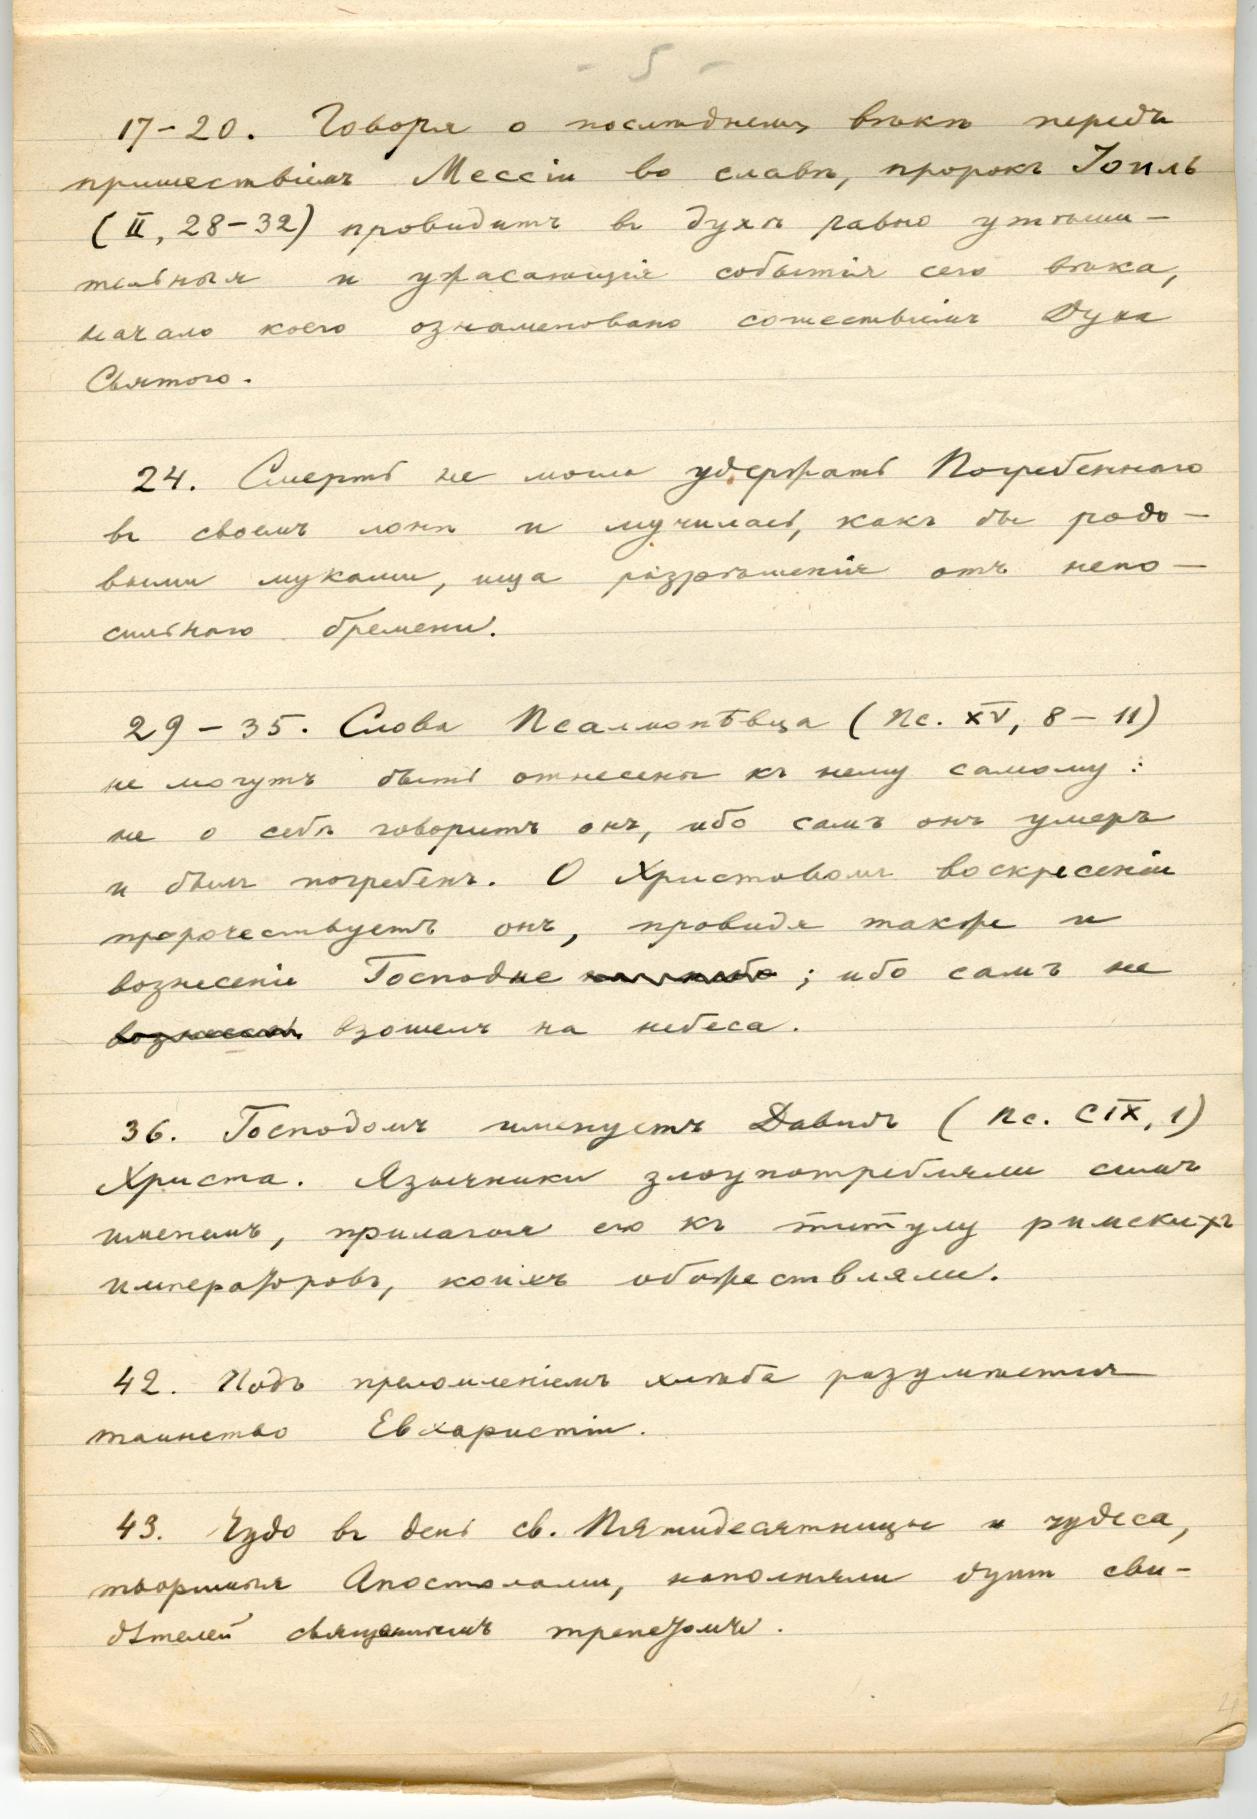 - 5 -
17-20. Говоря о послѣднемъ вѣкѣ передъ
пришествіемъ Мессіи во славѣ, пророкъ Іоиль
(II, 28-32) провидитъ въ духѣ равно утѣши-
тельныя и ужасающія событія сего вѣка,
начало коего ознаменовано сошествіемъ Духа
Святого.
24. Смерть не могла удержать Погребеннаго
въ своемъ лонѣ и мучилась, какъ бы родо-
выми муками, ища разрѣшенія отъ непо-
сильнаго бремени.
29-35. Слова Псалмопѣвца (Пс. XV, 8-11)
не могутъ быть отнесены къ нему самому:
не о себѣ говоритъ онъ, ибо самъ онъ умеръ
и былъ погребенъ. О Христовомъ воскресеніи
пророчествуетъ онъ, провидя также и
вознесеніе Господне на небо; ибо самъ не
вознесся взошелъ на небеса.
36. Господомъ именуетъ Давидъ (Пс. CIX, 1)
Христа. Язычники злоупотребляли симъ
именемъ, прилагая его къ титулу римскихъ
императоровъ, коихъ обожествляли.
42. Подъ преломленіемъ хлѣба разумѣется
таинство Евхаристіи.
43. Чудо въ день св. Пятидесятницы и чудеса,
творимыя Апостолами, наполняли души сви-
дѣтелей священнымъ трепетомъ.